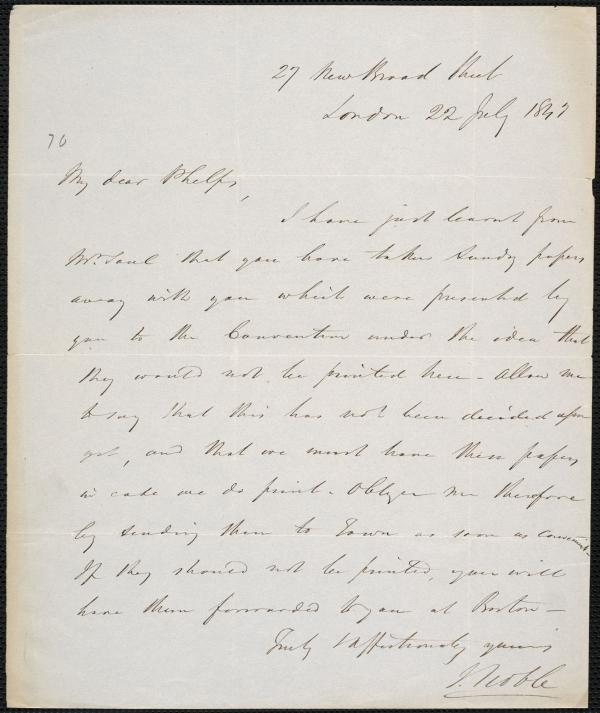 27 New Broad Street
London 22 July 184
70
My dear Phelps,
I have just learnt from
Mr. Soul that you have taken sundry papers
away with you which were presented by
you to the Convention under the idea that
they would not be printed here - Allow me
to say that this has not been decided upon
yet, and that we must have these papers
in case we do print. Oblige me therefore
by sending them to Town as soon as convenient
If they should not be printed, you will
have them forwarded to you at Boston -
Truly & affectionately yours